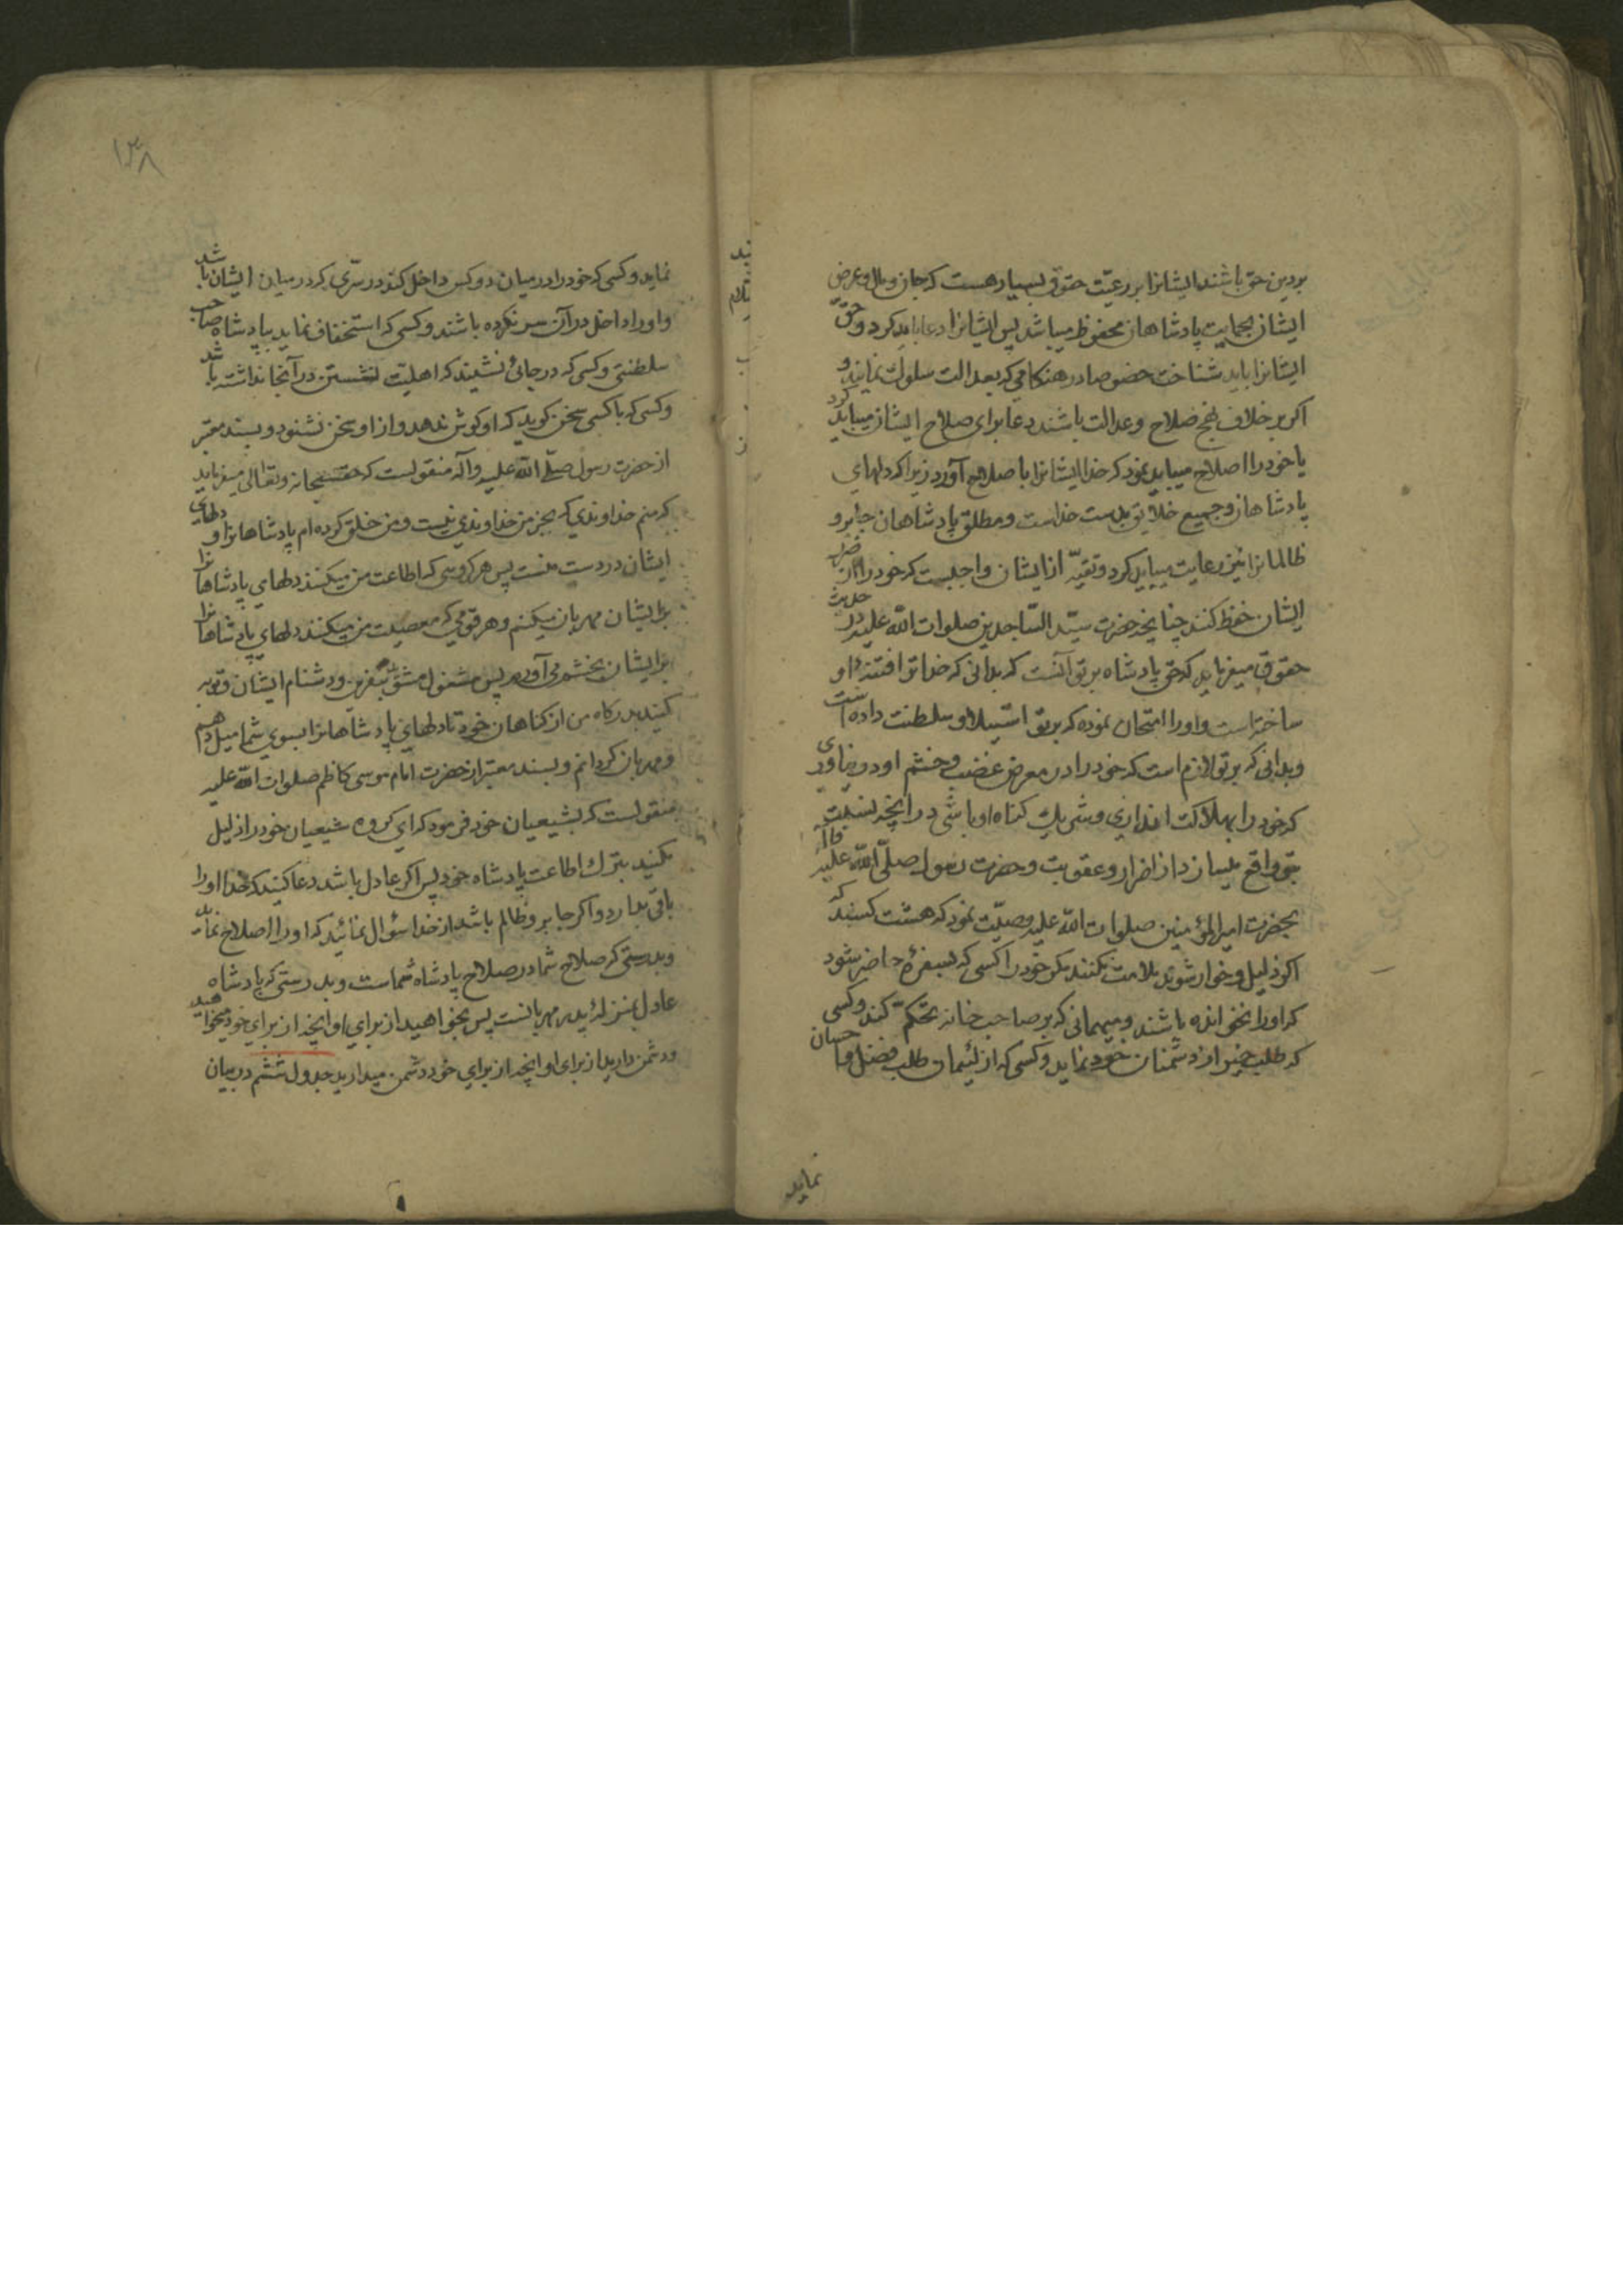 بر دین حق باشند ایشانرا بر رعیّت حقوق بسیار هست که جان و مال و عرض
ایشان بحمایت پادشاهان محفوظ میباشد پس ایشانرا دعا باید کرد و حق
ایشانرا باید شناخت خصوصا در هنگامی که بعدالت سلوک نمایند و
اکر بر خلاف نهج صلاح و عدالت باشند دعا برای صلاح ایشان میباید کرد
یا خود را اصلاح میباید نمود که خدا ایشانرا باصلاح آورد زیرا که دلهای
پادشاهان و جمیع خلایق بدست خداست و مطلق پادشاهان جابر و
ظالمانرا نیز رعایت میباید کرد و تقیّه از ایشان واجبست که خود را از ضرر
ایشان حفظ کنند چنانچه حضرت سیّد السّاجدین صلوات اللّه علیه در حدیث
حقوق میفرماید که حق پادشاه بر تو آنست که بدانی که خدا تو را فتنهٔ او
ساخته است و او را امتحان نموده که بر تو استیلا و سلطنت داده است
و بدانی که بر تو لازم است که خود را در معرض غضب و خشم او در نیاوری
که خود را بهلاکت اندازی و شریک کناه او باشی در آنچه نسبت
بتو واقع میسازد از اضرار و عقوبت و حضرت رسول صلّی اللّه علیه وآله
بحضرت امیر المؤمنین صلوات اللّه علیه وصیّت نمود که هشت کسند که
اکر ذلیل و خوار شوند ملامت نکنند مکر خود را کسی که بسفرهٔ حاضر شود
که او را نخوانده باشند و میهمانی که بر صاحب خانه تحکّم کند و کسی
که طلب خیر از دشمنان خود نماید و کسی که از لئیمان طلب فضل و احسان
نماید
۱۳۸
نماید و کسی که خود را در میان دو کس داخل کند در سرّی که در میان ایشان باشد
و او را داخل در آن سر نکرده باشند و کسی که استخفاف نماید بپادشاه صاحب
سلطنتی و کسی که در جائی نشیند که اهلیّت نشستن در آنجا نداشته باشد
و کسی که با کسی سخن کوید که او کوش ندهد و از او سخن نشنود و بسند معتبر
از حضرت رسول صلّی اللّه علیه وآله منقولست که حقسبحانه وتعالی میفرماید
که منم خداوندی که بجز من خداوندی نیست و من خلق کرده‌ام پادشاهانرا و دلهای
ایشان در دست منست پس هر کروهی که اطاعت من میکنند دلهای پادشاهانرا
بر ایشان مهربان میکنم و هر قومی که معصیت من میکنند دلهای پادشاهانرا
بر ایشان بخشم می‌آورم پس مشغول مشوید بنفرین و دشنام ایشان و توبه
کنید بدرکاه من از کناهان خود تا دلهای پادشاهانرا بسوی شما میل دهم
و مهربان کردانم و بسند معتبر از حضرت امام موسی کاظم صلوات اللّه علیه
منقولست که بشیعیان خود فرمود که ای کروه شیعیان خود را ذلیل
مکنید بترک اطاعت پادشاه خود پس اکر عادل باشد دعا کنید که خدا او را
باقی بدارد و اکر جابر و ظالم باشد از خدا سؤال نمائید که او را اصلاح نماید
و بدرستی که صلاح شما در صلاح پادشاه شماست و بدرستی که پادشاه
عادل بمنزلهٔ پدر مهربانست پس بخواهید از برای او آنچه از برای خود میخواهید
و دشمن دارید از برای او آنچه از برای خود دشمن میدارید جدول ششم در بیان